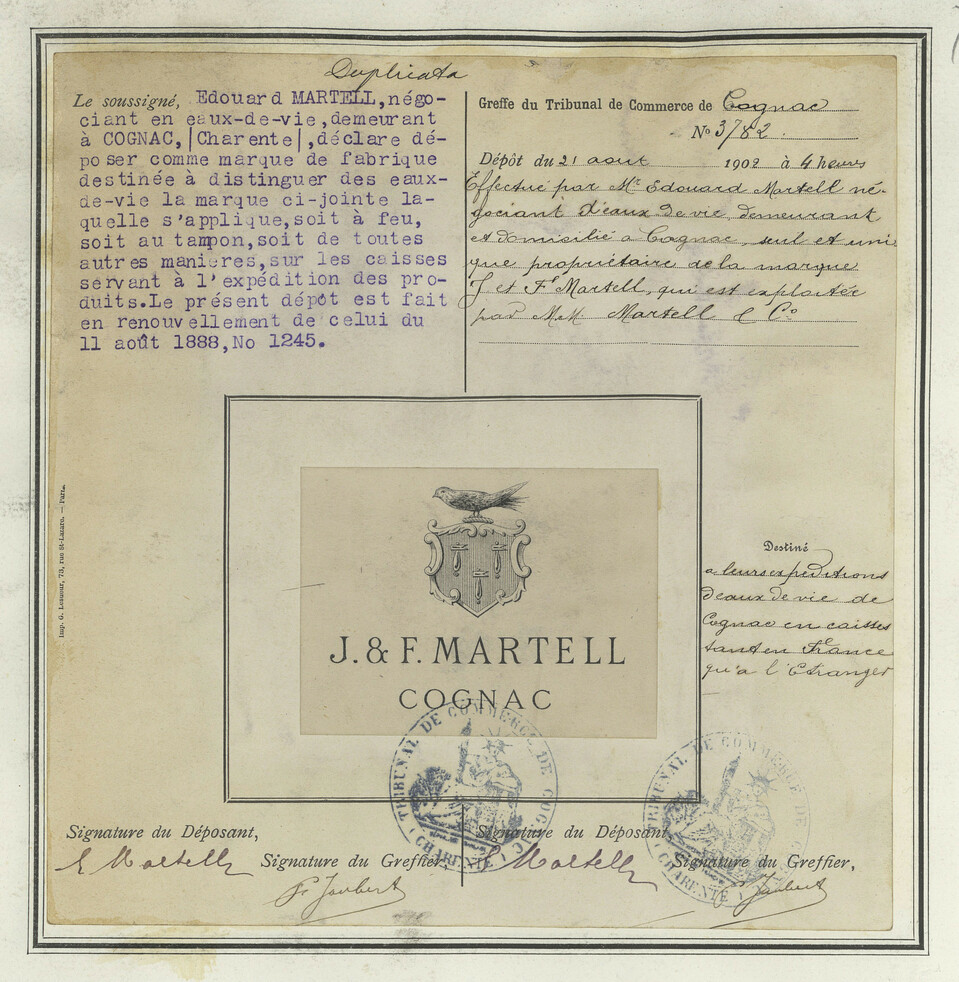 Duplicata
Le soussigné, Edouard MARTELL, négo-
ciant en eaux-de-vie, demeurant
à COGNAC, |Charente|, déclare dé-
poser comme marque de fabrique
destinée à distinguer des eaux-
de-vie la marque ci-jointe la-
quelle s'applique, soit à feu,
soit au tampon, soit de toutes
autres manières, sur les caisses
servant à l'expédition des pro-
duits. Le présent dépôt est fait
en renouvellement de celui du
11 août 1888, No 1245.
Greffe du Tribunal de Commerce de Cognac
No 3782.
Dépôt du 21 aout 1902 à 4 heures
Effectué par Mr Edouard Martell né-
gociant d'eaux de vie, demeurant
et domicilié a Cognac, seul et uni
que propriétaire de la marque
J et F Martell, qui est exploitée
par MM Martell & Co
Imp. G. Lesueur, 73, rue St-Lazare. — Paris.
J. & F. MARTELL
COGNAC
Destiné
a leurs expéditions
d'eaux de vie de
Cognac en caisses
tant en France
qu'a l'Etranger
TRIBUNAL DE COMMERCE DE COGNAC
(CHARENTE)
TRIBUNAL DE COMMERCE DE
CHARENTE
Signature du Déposant,
E Martell
Signature du Greffier,
F Joubert
Signature du Déposant,
E Martell
Signature du Greffier,
F Joubert